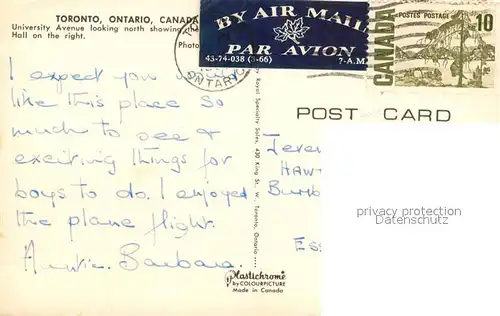 TORONTO, ONTARIO, CANADA
University Avenue looking north showing the
Hall on the right.
Photo
BY AIR MAIL
PAR AVION
43-74-038 (3-66) 7-A.M.
ONTARIO
POSTES POSTAGE
10
CANADA
I expect you would
like this place so
much to see &
exciting things for
boys to do. I enjoyed
the plane flight.
Auntie. Barbara.
by Royal Specialty Sales, 430 King St. W., Toronto, Ontario
Plastichrome
by COLOURPICTURE
Made in Canada
POST CARD
HAWT
Ess
privacy protection
Datenschutz